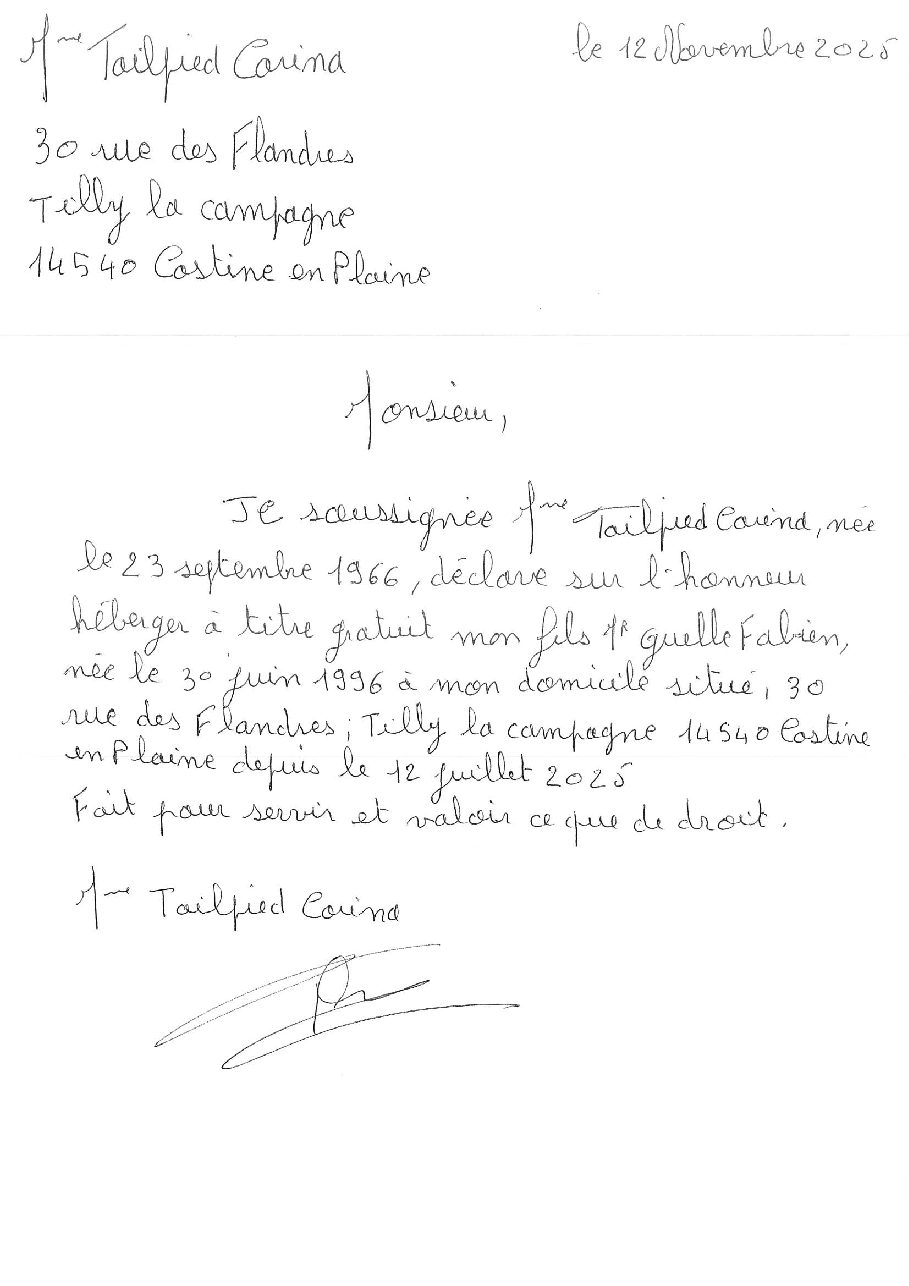 Mme Tailpied Carina
le 12 Novembre 2025
30 rue des Flandres
Tilly la campagne
14540 Castine en Plaine
Monsieur,
Je soussignée Mme Tailpied Carina, née
le 23 septembre 1966, déclare sur l'honneur
héberger à titre gratuit mon fils Mr Guelle Fabien,
née le 30 juin 1996 à mon domicile situé, 30
rue des Flandres ; Tilly la campagne 14540 Castine
en Plaine depuis le 12 juillet 2025
Fait pour servir et valoir ce que de droit.
Mme Tailpied Carina